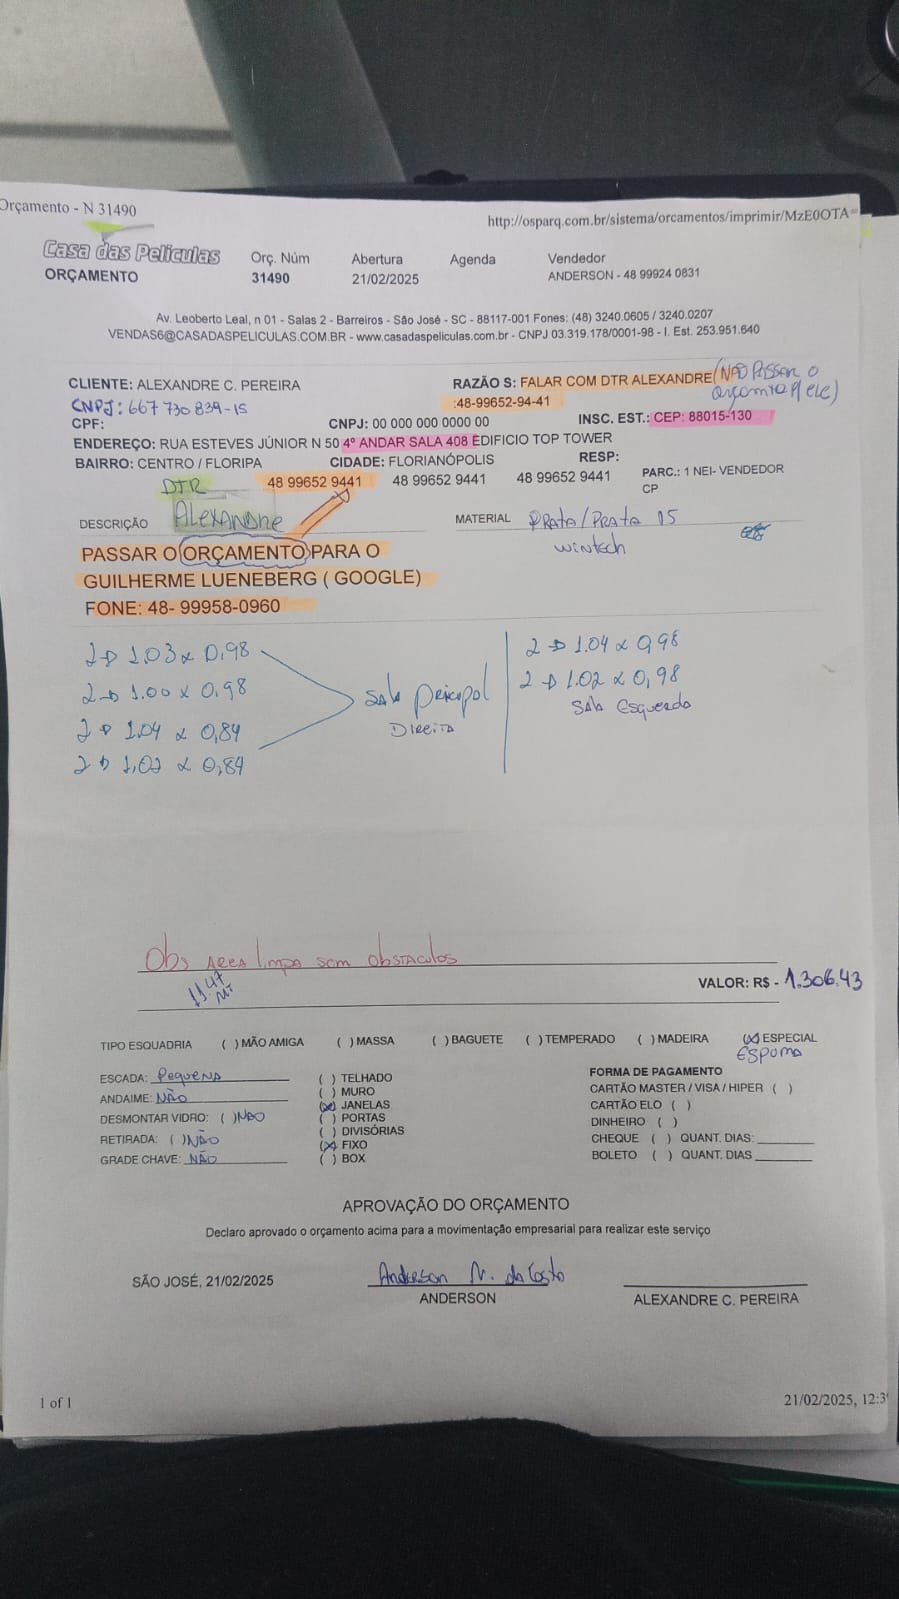 Orçamento - N 31490
http://osparq.com.br/sistema/orcamentos/imprimir/MzE0OTA=
Casa das Peliculas
ORÇAMENTO
Orç. Núm
31490
Abertura
21/02/2025
Agenda
Vendedor
ANDERSON - 48 99924 0831
Av. Leoberto Leal, n 01 - Salas 2 - Barreiros - São José - SC - 88117-001 Fones: (48) 3240.0605 / 3240.0207
VENDAS6@CASADASPELICULAS.COM.BR - www.casadaspeliculas.com.br - CNPJ 03.319.178/0001-98 - I. Est. 253.951.640
CLIENTE: ALEXANDRE C. PEREIRA
RAZÃO S: FALAR COM DTR ALEXANDRE (NÃO PASSAR O
:48-99652-94-41
orçamento p/ ele)
CNPJ: 667 730 839-15
CPF:
CNPJ: 00 000 000 0000 00
INSC. EST.: CEP: 88015-130
ENDEREÇO: RUA ESTEVES JÚNIOR N 50 4º ANDAR SALA 408 EDIFICIO TOP TOWER
BAIRRO: CENTRO / FLORIPA
CIDADE: FLORIANÓPOLIS
RESP:
DTR
48 99652 9441
48 99652 9441
48 99652 9441
PARC.: 1 NEI- VENDEDOR
CP
DESCRIÇÃO
Alexandre
MATERIAL
PRATA/PRATA 15
wintech
PASSAR O ORÇAMENTO PARA O
GUILHERME LUENEBERG ( GOOGLE)
FONE: 48- 99958-0960
2 → 1.03 x 0.98
2 → 1.00 x 0.98
2 → 1.04 x 0,84
2 → 1,02 x 0,84
Sala principal
Direita
2 → 1.04 x 0,98
2 → 1.02 x 0,98
Sala Esquerda
Obs AREA limpa sem obstaculos
11 47
MT
VALOR: R$ - 1.306.43
TIPO ESQUADRIA ( ) MÃO AMIGA ( ) MASSA ( ) BAGUETE ( ) TEMPERADO ( ) MADEIRA (X) ESPECIAL
ESPUMA
ESCADA: Pequena
ANDAIME: NÃO
DESMONTAR VIDRO: ( ) NÃO
RETIRADA: ( ) NÃO
GRADE CHAVE: NÃO
( ) TELHADO
( ) MURO
(X) JANELAS
( ) PORTAS
( ) DIVISÓRIAS
(X) FIXO
( ) BOX
FORMA DE PAGAMENTO
CARTÃO MASTER / VISA / HIPER ( )
CARTÃO ELO ( )
DINHEIRO ( )
CHEQUE ( ) QUANT. DIAS:
BOLETO ( ) QUANT. DIAS
APROVAÇÃO DO ORÇAMENTO
Declaro aprovado o orçamento acima para a movimentação empresarial para realizar este serviço
SÃO JOSÉ, 21/02/2025
Anderson N. da Costa
ANDERSON
ALEXANDRE C. PEREIRA
1 of 1
21/02/2025, 12:3